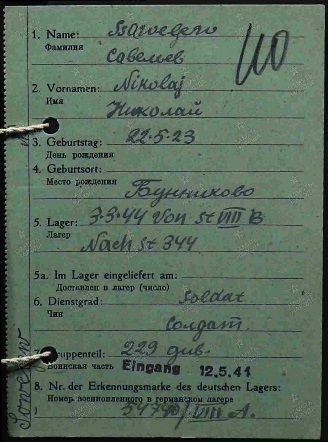 1. Name:
Фамилия
Савельев
110
2. Vornamen: Nikolaj
Имя
Николай
3. Geburtstag: 22-5-23
День рождения
4. Geburtsort:
Место рождения
Бунтиково
5. Lager: 3-3-44 Von St VIII B
Лагерь
Nach St 344
5a. Im Lager eingeliefert am:
Доставлен в лагерь (число)
6. Dienstgrad: Soldat
Чин
Солдат.
7. Truppenteil: 229 див.
Воинская часть Eingang 12.5.41
8. Nr. der Erkennungsmarke des deutschen Lagers:
Номер военнопленного в германском лагере
VIII A.